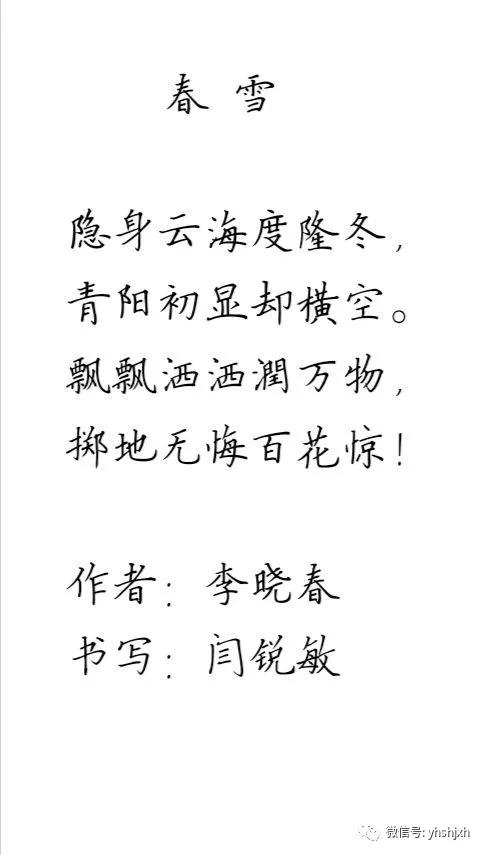 春 雪
隐身云海度隆冬，
青阳初显却横空。
飘飘洒洒潤万物，
掷地无悔百花惊！
作者：李晓春
书写：闫锐敏
微信号: yhshjxh